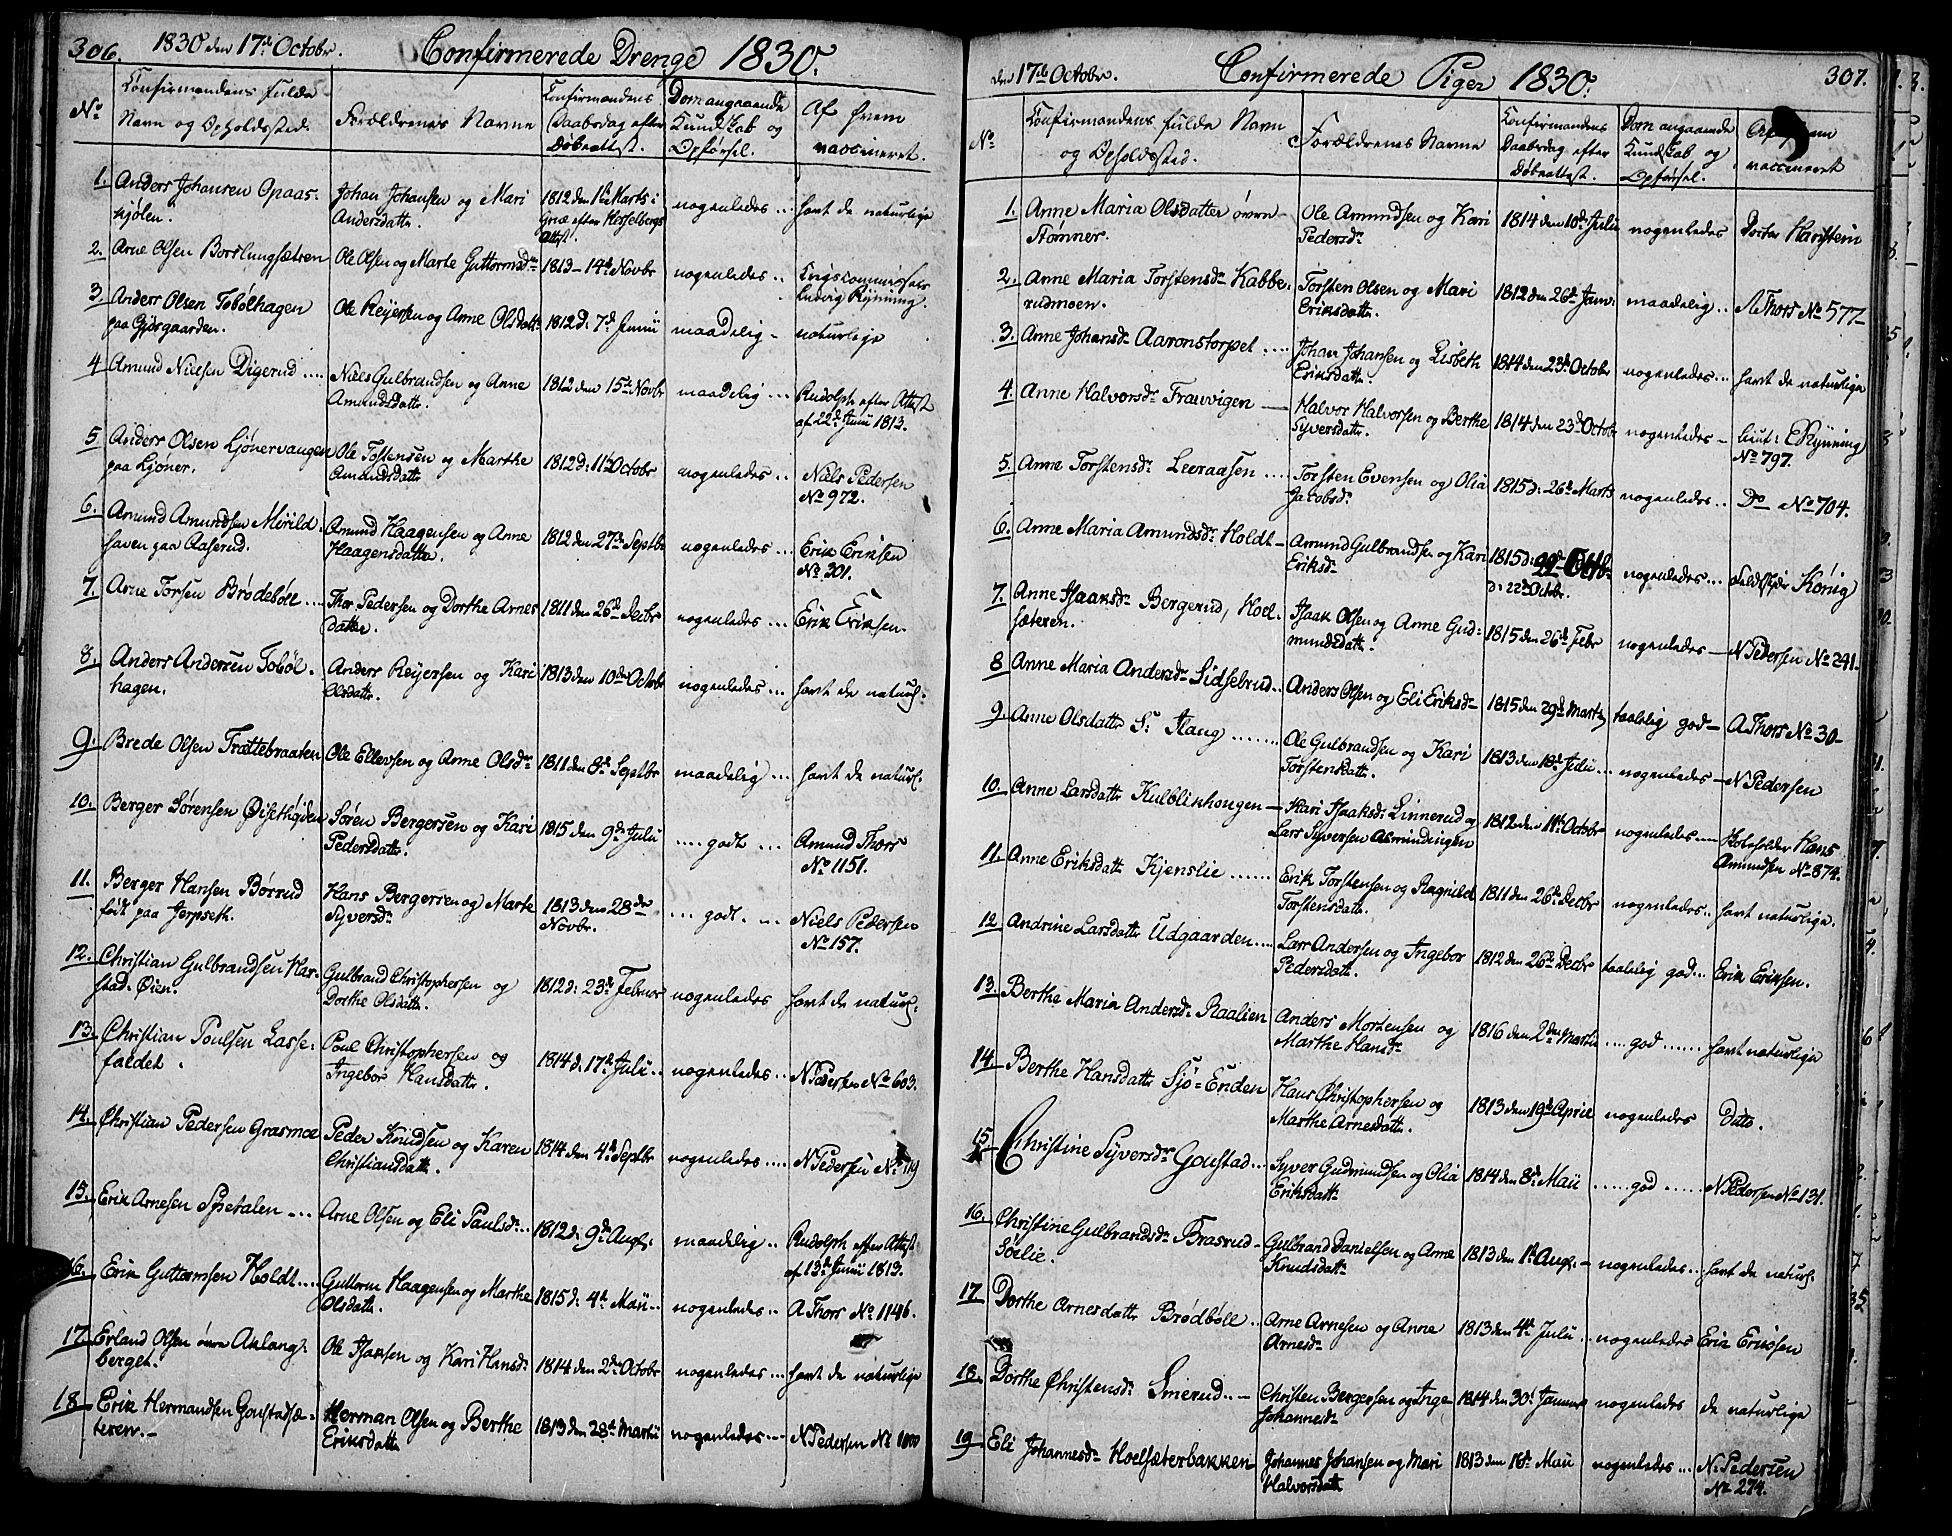 306. 1830 den 17de Octobr. Confirmerede Drenge 1830.
No
Confirmandens fulde
Navn og Opholdssted.
Forældrenes Navne
Confirmandens
Daabsdag efter
Døbeattest.
Dom angaaende
Kundskab og
Opførsel.
Af hvem
vaccineret.
1. Anders Johansen Opaas-
kjølen.
Johan Johansen og Mari
Andersdattr.
1812 den 1te Marts i
Attest.
nogenledes ..
havt de naturlige
2. Arne Olsen Borslungsætren
Ole Olsen og Marte Guttormsdr
1813 – 14de Novbr
nogenledes ..
Krigscommissair
Ludvig Rynning.
3. Anders Olsen Tobølhagen
paa Gjørgaarden.
Ole Reiersen og Anne Olsdattr
1812 d. 7de Junii
maadelig –
naturlige
4 Amund Nielsen Digerud ....
Niels Gulbrandsen og Anne
Amundsdattr.
1812 den 15de Novbr
maadelig ...
Rudolph efter Attest
af 22de Junii 1813.
5 Anders Olsen Ljønervangen
paa Ljøner.
Ole Tostensen og Marthe
Amundsdattr
1812 d. 11te Octobr
nogenledes ..
Niels Pedersen
No 972.
6. Amund Amundsen Morild-
haven paa Aaserud.
Amund Haagensen og Anne
Haagensdatter.
1812 den 27de Septbr
nogenledes ..
Erik Eriksen
No 301.
7. Arne Torsen Brødebøle ....
Thor Pedersen og Dorthe Arnes
datter.
1811 den 26de Decbr
nogenledes ...
Erik Eriksen.
8. Anders Andersen Tobøl-
hagen.
Anders Reiersen og Kari
Olsdattr.
1813 den 10de Octobr
nogenledes ...
havt de naturl.
9. Brede Olsen Trættebraaten
Ole Ellevsen og Anne Olsdr
1811 den 8de Septbr
maadelig ...
havt de naturl.
10. Berger Sørensen Øisethøiden
Søren Bergersen og Kari
Pedersdattr.
1815 den 9de Julii
.... godt ...
Amund Thors
No 1151.
11. Berger Hansen Børrud
født paa Jerpseth.
Hans Bergersen og Marte
Syversdr
1813 den 28de
Novbr.
... godt. ...
Niels Pedersen
No 157.
12. Christian Gulbrandsen Har-
stad-Øien.
Gulbrand Christophersen og
Dorthe Olsdattr.
1812 d. 23de Februar
nogenledes
havt de naturl.
13. Christian Poulsen Lasse-
faldet.
Poul Christophersen og
Ingebor Hansdattr.
1814 d. 17de Julii ..
nogenledes ...
N Pedersen No 603.
14. Christian Pedersen Grasmoe
Peder Knudsen og Karen
Christiansdattr.
1814 den 4de Septbr
nogenledes ....
N Pedersen No 119
15. Erik Arnesen Spetalen ...
Arne Olsen og Eli Paulsdr...
1812 d. 9de Augs.
maadelig ..
Rudolph efter Attest
af 13de Junii 1813.
16. Erik Guttormsen Holdt....
Guttorm Haagensen og Marthe
Olsdattr.
1815 d. 4de Maii ..
nogenledes ..
A Thors No 1146.
17. Erland Olsen øvre Aslang-
berget.
Ole Isaksen og Kari Hansdr
1814 den 2den Octobr
nogenledes ...
havt de naturlige
18 Erik Hermandsen Goustadsæ-
teren.–
Herman Olsen og Berthe
Eriksdattr
1813 den 28de Martii
nogenledes ...
N Pedersen No 1000
den 17de Octobr. Confirmerede Piger 1830. 307.
No
Confirmandens fulde Navn
og Opholdssted.
Forældrenes Navne
Confirmandens
Daabsdag efter
Døbeattest.
Dom angaaende
Kundskab og
Opførsel.
Af hvem
vaccineret
1. Anne Maria Olsdatter øvre
Stømner.
Ole Amundsen og Kari
Pedersdr
1814 den 10de Julii
nogenledes
Doctor Haristein
2. Anne Maria Torstensdr Kabbe-
rudmoen.
Torsten Olsen og Mari
Eriksdattr.
1812 den 26de Janr.
maadelig ..
A Thors No 577–
3. Anne Johansdr Aaronstorpet ....
Johan Johansen og Lisbeth
Eriksdattr.
1814 den 23de Octobr
nogenledes ...
havt de naturlige
4. Anne Halvorsdr Frauvigen –
Halvor Halvorsen og Berthe
Syversdattr.
1814 den 23de Octobr
nogenledes –
Lieut: E Rynning
No 797.
5. Anne Torstensdr Leeraasen ....
Torsten Evensen og Olia
Jacobsdr
1815 d. 26de Marts
nogenledes ..
Do No 704.
6. Anne Maria Amundsdr Holdt –
Amund Gulbrandsen og Kari
Eriksdr
1815 d. 22de Octbr
d. 22de Octobr.
nogenledes ...
Feldskjær König
7. Anne Isaksdr Bergerud, Hoel-
sæteren.
Isaak Olsen og Anne Gud-
mundsdattr.
1815 den 26de Febr
nogenledes –
N Pedersen No 241.
8 Anne Maria Andersdr Sidsebrud..
Anders Olsen og Eli Eriksdr
1815 den 29de Martz
taalelig god –
A Thors No 30–
9. Anne Olsdattr Sr Haug ........
Ole Gulbrandsen og Kari
Torstensdattr.
1813 den 18de Julii ...
nogenledes –
N Pedersen
10. Anne Larsdattr Kulblikhougen –
Kari Isaaksdr Linnerud og
Lars Syversen Asmundingen
1812 den 11te Octobr
nogenledes –
Hans
Amundsen No 874.
11. Anne Eriksdattr Kjenslie ......
Erik Torstensen og Ragnild
Torstensdattr.
1811 den 26de Decbr
nogenledes..
havt naturlige.
12 Andrine Larsdattr Udgaarden ....
Lars Andersen og Ingebor
Pedersdattr.
1812 den 26de Decbr
taalelig god ...
Erik Eriksen.
13. Berthe Maria Andersdr Raalien
Anders Mortensen og
Marthe Hansdr
1816 den 2den Martii
.... god ......
havt naturlige
14. Berthe Hansdattr Sjø-Enden
Hans Christophersen og
Marthe Arnesdattr.
1813 den 19de Aprie
nogenledes
Ditto.
15 Christine Syversdr Goustad...
Syver Gudmundsen og Olia
Eriksdattr
1814 den 8de Maii
..... god .....
N. Pedersen No 131.
16. Christine Gulbrandsdr Brasrud-
Sølie.
Gulbrand Danielsen og Anne
Knudsdattr
1813 den 1te Augs. –
nogenledes ..
havt de naturl.
17. Dorthe Arnesdattr Brødbølle ..
Arne Arnesen og Anne
Arnesdr
1813 den 4de Julii ..
nogenledes
Eric Ericsen
18. Dorthe Christensdr Smerud .. –
Christen Bergersen og Inge-
Johannesdr
1814 den 30te Januar
nogenledes
de naturlige
19 Eli Johannesdr Hoelsæterbakken
Johannes Johansen og Mari
Halvorsdattr
1813 den 16de Maii
nogenledes ...
N. Pedersen
No 274.